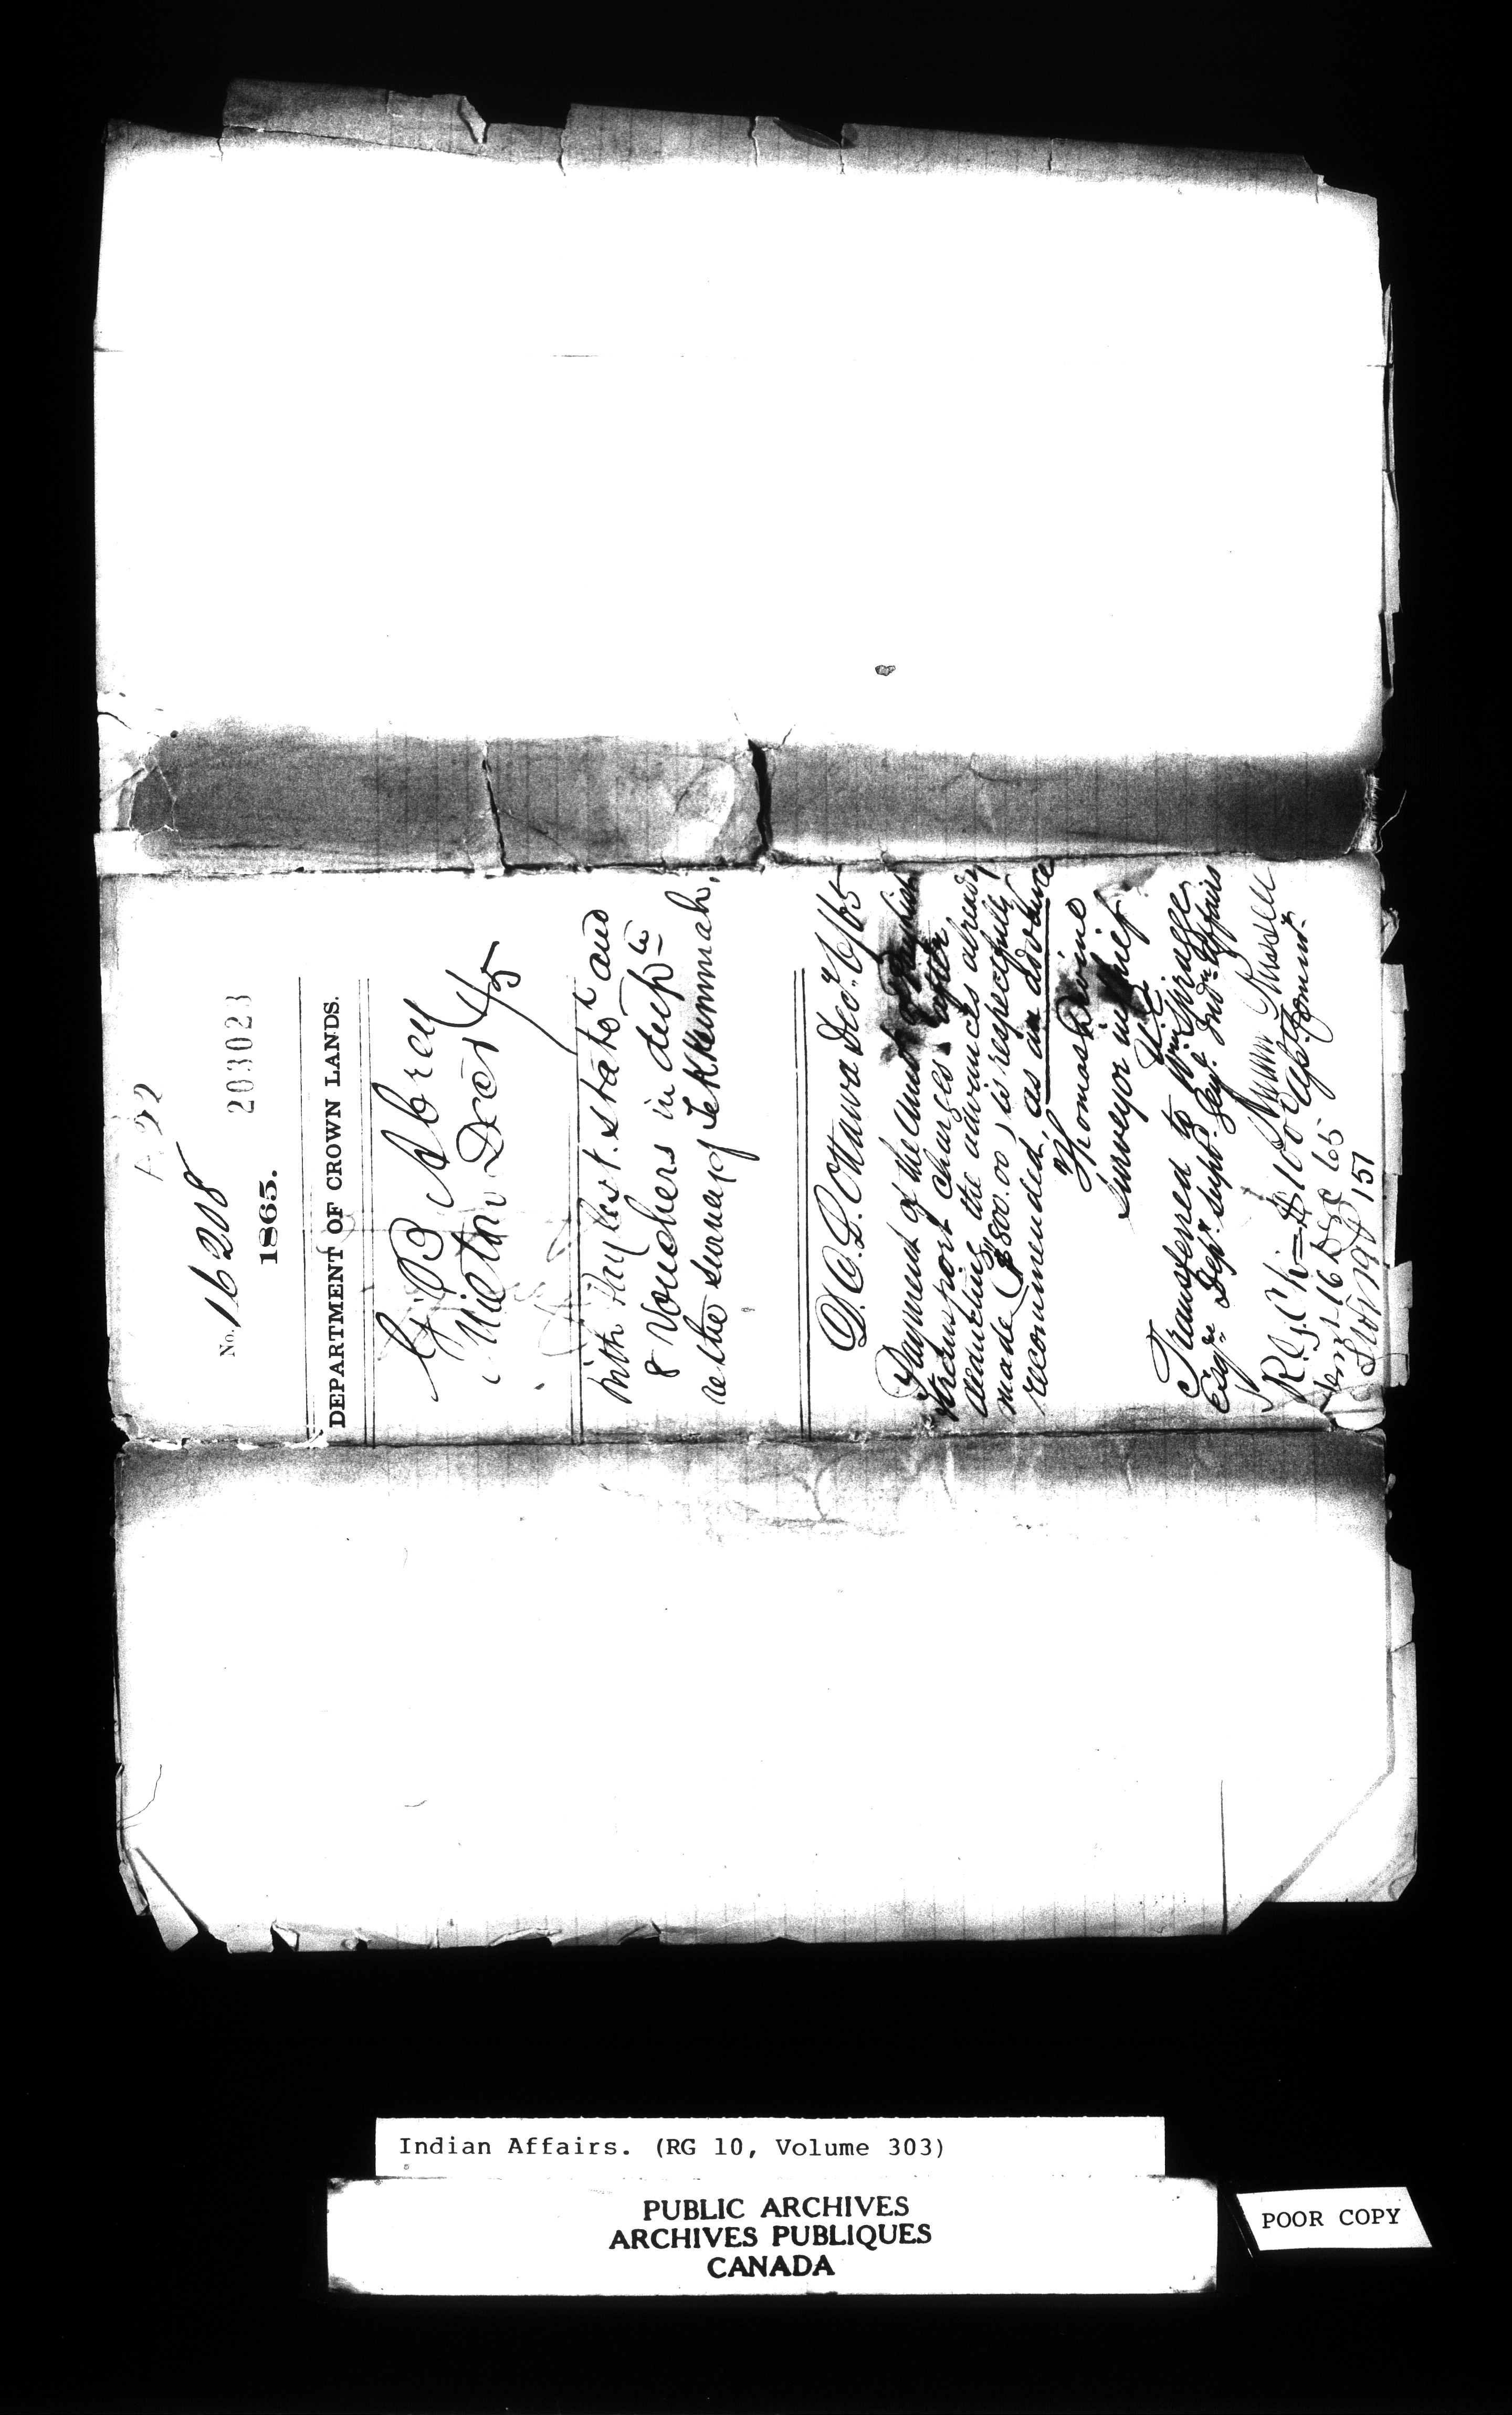 A 22
No. 16208
203023
1865.
DEPARTMENT OF CROWN LANDS.
G B Abrey
Milton Decr 4/65
With Pay list. statt and
8 Vouchers in dupte
re the survey of Tekkummah,
D. C. L. Ottawa Decr 6/65
Payment of the Amt
transport charges after
deducting the advances already
made ($800.00) is respectfully
recommended, as an advance
Thomas Devine
Surveyor in chief
U.C.
Transferred to Wm Spragge
Esqre Depy Supt Genl Indn Affairs
Andrew Russell
Asst Commr.
R. G. Ck $1600
16 Dec 65
151
Indian Affairs. (RG 10, Volume 303)
PUBLIC ARCHIVES
ARCHIVES PUBLIQUES
CANADA
POOR COPY